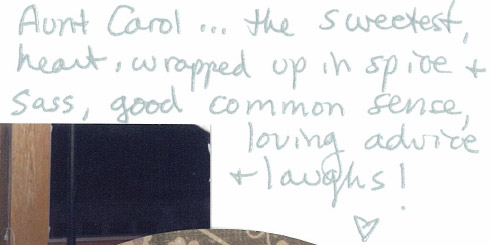 Aunt Carol ... the sweetest,
heart, wrapped up in spice +
sass, good common sense,
loving advice
+ laughs!
♡